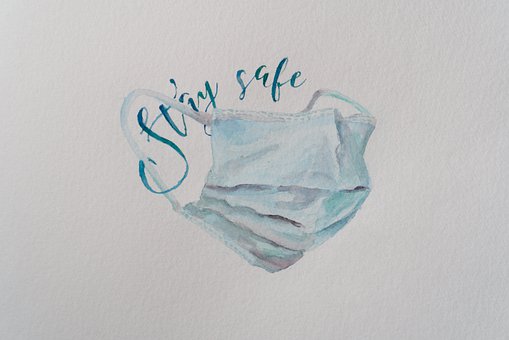 Stay safe